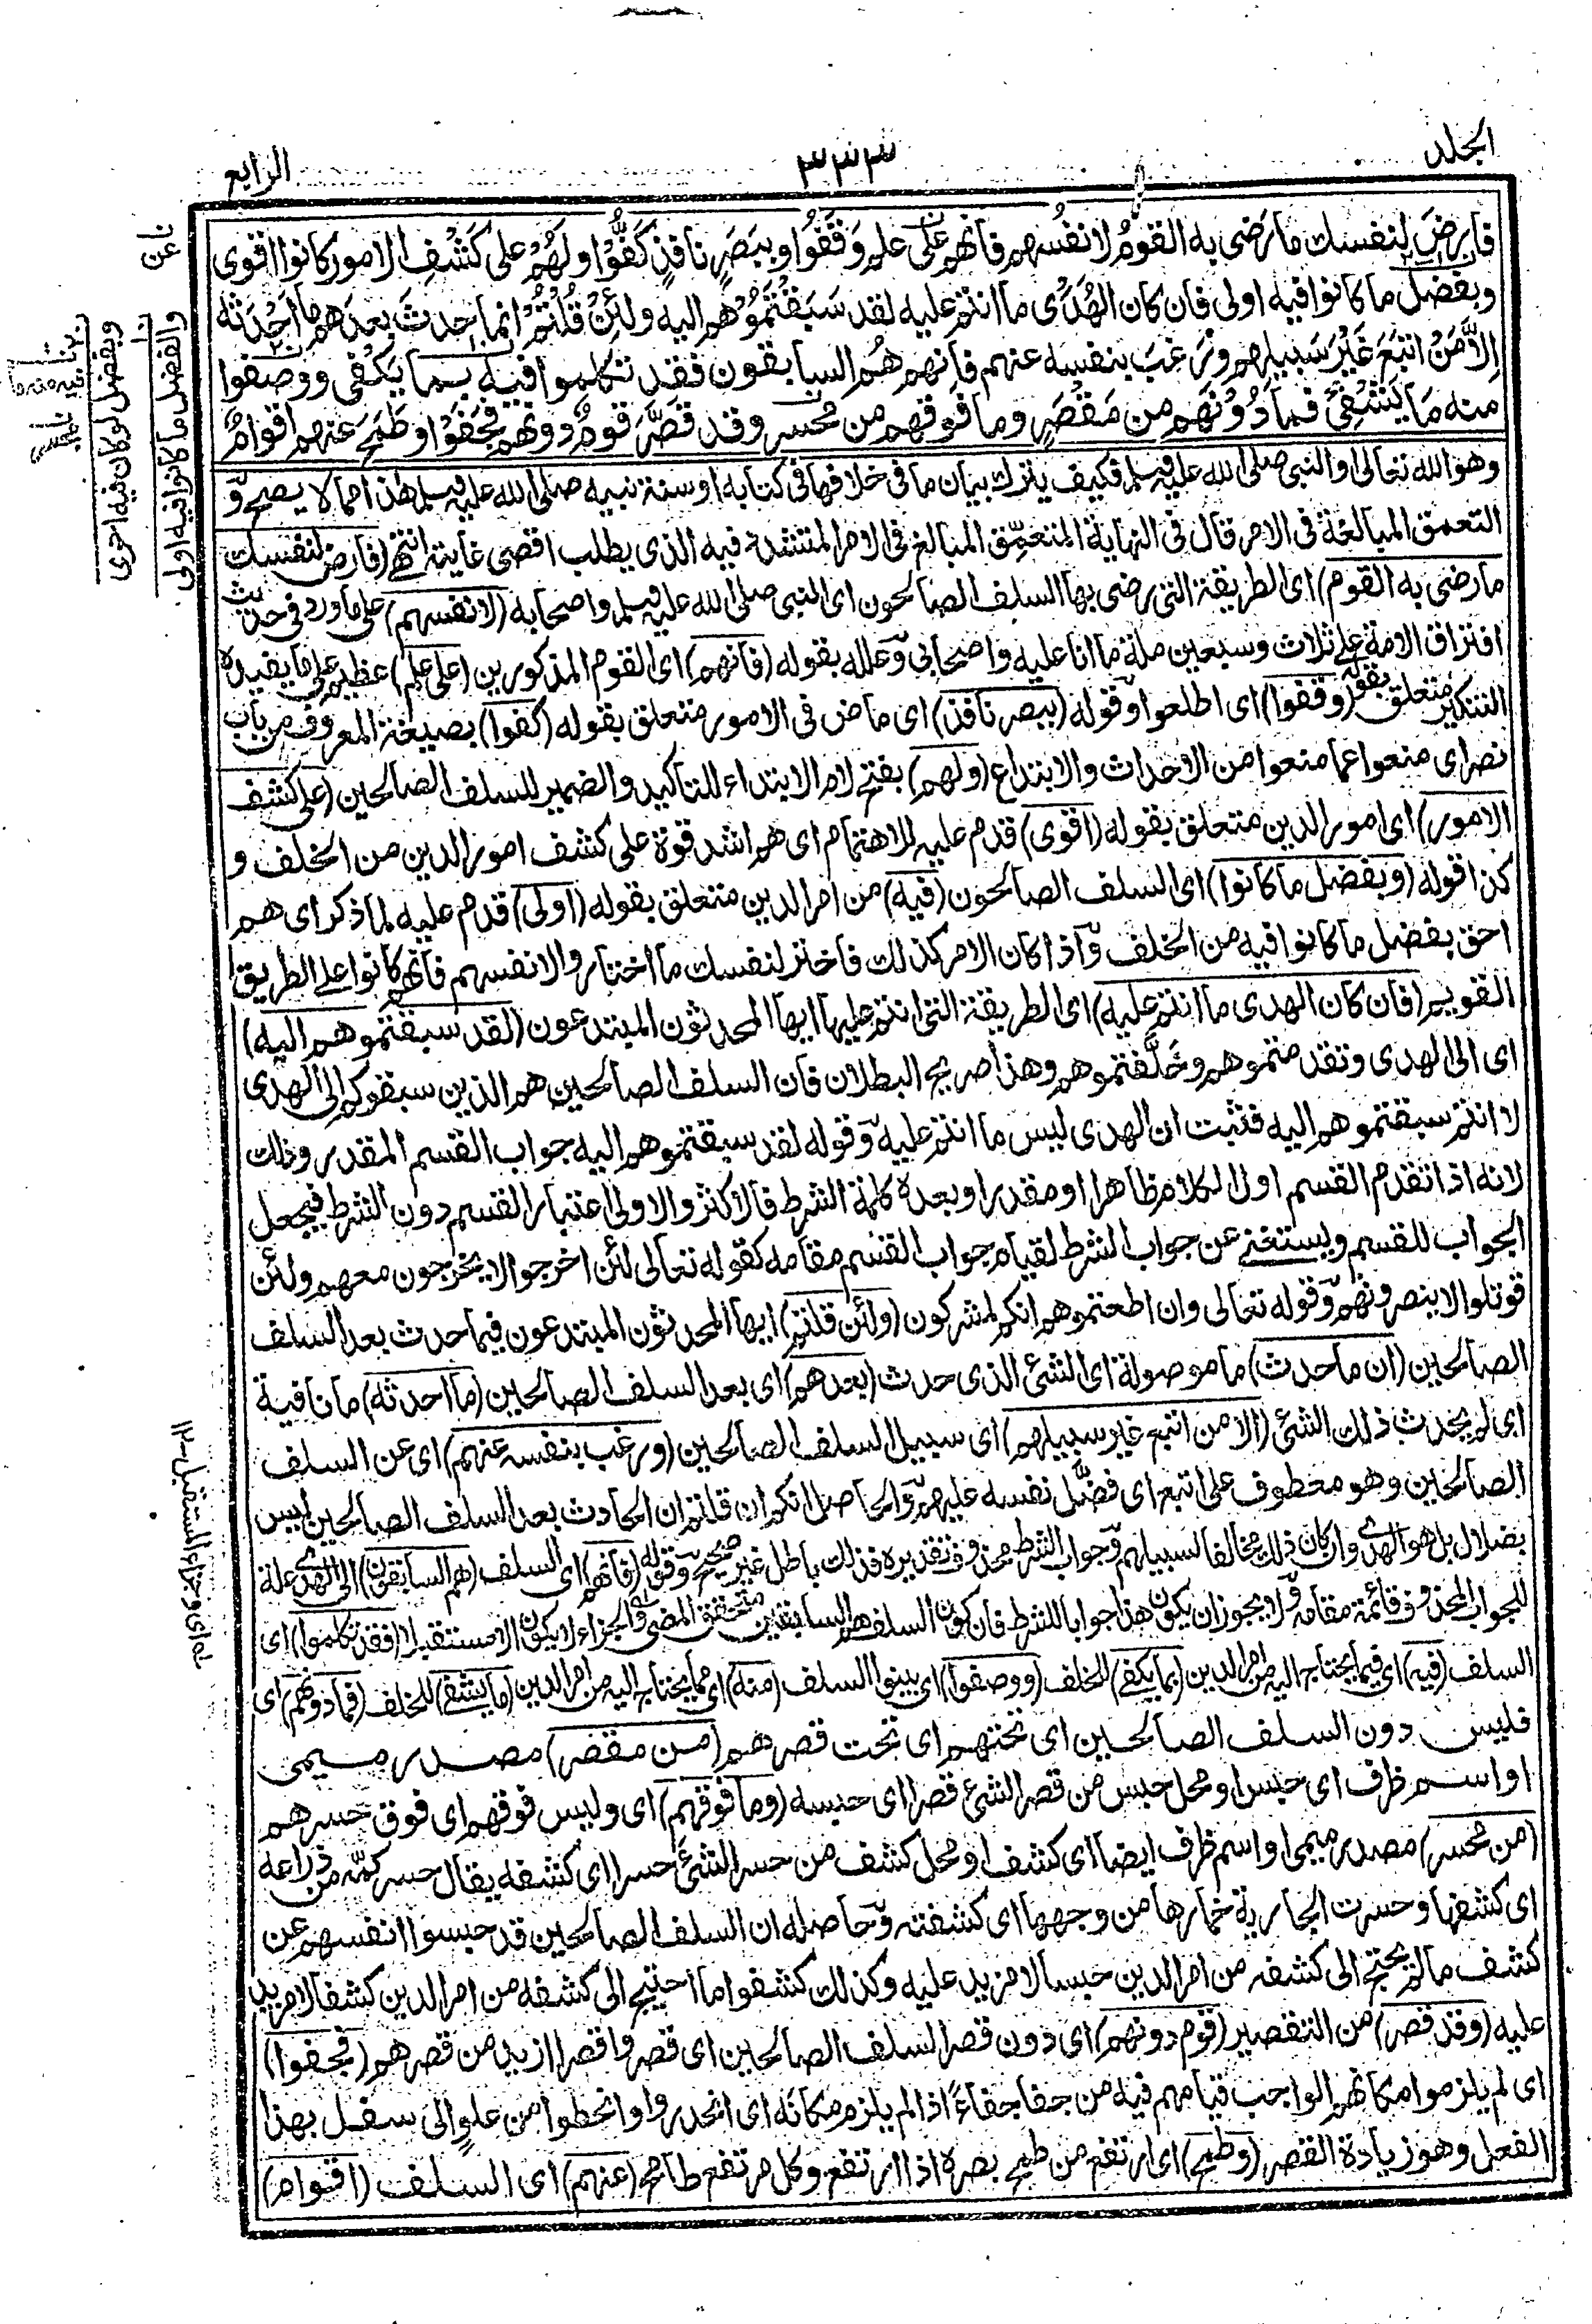 المجلد
٣٣٣
الرابع
فارض لنفسك ما رَضى به القومُ لانفُسهم فانهم على علم وَقَفُوا وببَصَرٍ نافذٍ كَفُّوا ولَهُمْ على كَشْفِ الامور كانوا اقوى
وبفضل ما كانوا فيه اولى فان كان الهُدَى ما انتم عليه لقد سَبَقْتُمُوْهم اليه ولئِنْ قُلْتُمْ انما حدثَ بعدَهم ما اَحْدَثَه
اِلاَّ مَنْ اتبَعَ غَيْرَ سَبيلهم ورَغبَ بنفسه عنهم فانهم هُم السابقون فقد تكلموا فيه بما يكْفى ووصفوا
منه مَا يَشْفِىْ فما دُوْنَهم من مَقْصَرٍ وما فوقهم من مَحْسَر وقد قَصَّرَ قومٌ دونهم فجَفَوْا وطَمَحَ عنهم اقوامٌ
وهو الله تعالى او النبى صلى الله عليه وسلم فكيف يترك بيان ما فى خلافها فى كتابه او سنة نبيه صلى الله عليه وسلم هذا مما لا يصح و
التعمق المبالغة فى الامر قال فى النهاية المتعمّق المبالغ فى الامر المتشدد فيه الذى يطلب اقصى غايته انتهى (فارض لنفسك
ما رضى به القوم) اى الطريقة التى رضى بها السلف الصالحون اى النبى صلى الله عليه وسلم واصحابه (لانفسهم) على ما ورد فى حديث
افتراق الامة على ثلاث وسبعين ملة ما انا عليه واصحابى وعلله بقوله (فانهم) اى القوم المذكورين (على علم) عظيم على ما يفيده
التنكير متعلق بقوله (وقفوا) اى اطلعوا وقوله (ببصر نافذ) اى ماض فى الامور متعلق بقوله (كفوا) بصيغة المعروف من باب
نصر اى منعوا عما منعوا من الاحداث والابتداع (ولهم) بفتح لام الابتداء للتاكيد والضمير للسلف الصالحين (على كشف
الامور) اى امور الدين متعلق بقوله (اقوى) قدم عليه للاهتمام اى هم اشد قوة على كشف امور الدين من الخلف و
كذا قوله (وبفضل ما كانوا) اى السلف الصالحون (فيه) من امر الدين متعلق بقوله (اولى) قدم عليه لما ذكر اى هم
احق بفضل ما كانوا فيه من الخلف واذا كان الامر كذلك فاختر لنفسك ما اختاروا لانفسهم فانهم كانوا على الطريق
القويم (فان كان الهدى ما انتم عليه) اى الطريقة التى انتم عليها ايها المحدثون المبتدعون (لقد سبقتموهم اليه)
اى الى الهدى وتقدمتموهم وخَلَّفتموهم وهذا صريح البطلان فان السلف الصالحين هم الذين سبقوكم الى الهدى
لا انتم سبقتموهم اليه فثبت ان الهدى ليس ما انتم عليه وقوله لقد سبقتموهم اليه جواب القسم المقدر وذلك
لانه اذا تقدم القسم اول الكلام ظاهرا او مقدرا وبعده كلمة الشرط فالاكثر والاولى اعتبار القسم دون الشرط فيجعل
الجواب للقسم ويستغنى عن جواب الشرط لقيام جواب القسم مقامه كقوله تعالى لئن اخرجوا لا يخرجون معهم ولئن
قوتلوا لا ينصرونهم وقوله تعالى وان اطعتموهم انكم لمشركون (ولئن قلتم) ايها المحدثون المبتدعون فيما حدث بعد السلف
الصالحين (ان ما حدث) ما موصولة اى الشئ الذى حدث (بعدهم) اى بعد السلف الصالحين (ما احدثه) ما نافية
اى لم يحدث ذلك الشئ (الا من اتبع غير سبيلهم) اى سبيل السلف الصالحين (ورغب بنفسه عنهم) اى عن السلف
الصالحين وهو معطوف على اتبع اى فضَّل نفسه عليهم والحاصل انكم ان قلتم ان الحادث بعد السلف الصالحين ليس
بضلال بل هو الهدى وان كان ذلك مخالفا لسبيلهم وجواب الشرط محذوف تقديره فذلك باطل غير صحيح وقوله (فانهم) اى السلف (هم السابقون) الى الهدى علة
للجواب المحذوف قائمة مقامه ولا يجوز ان يكون هذا جوابا للشرط فان كون السلف هم السابقين متحقق المضى والجزاء لا يكون الا مستقبلا (فقد تكلموا) اى
السلف (فيه) اى فيما يحتاج اليه من امر الدين (بما يكفى) للخلف (ووصفوا) اى بينوا السلف (منه) اى مما يحتاج اليه من امر الدين (ما يشفى) للخلف (فما دونهم) اى
فليس دون السلف الصالحين اى تحتهم اى تحت قصرهم (من مقصر) مصدر ميمى
او اسم ظرف اى حبس او محل حبس من قصر الشئ قصرا اى حبسه (وما فوقهم) اى وليس فوقهم اى فوق حسرهم
(من محسر) مصدر ميمى او اسم ظرف ايضا اى كشف او محل كشف من حسر الشئ حسرا اى كشفه يقال حسر كمّه من ذراعه
اى كشفها وحسرت الجارية خمارها من وجهها اى كشفته وحاصله ان السلف الصالحين قد حبسوا انفسهم عن
كشف ما لم يحتج الى كشفه من امر الدين حبسا لا مزيد عليه وكذلك كشفوا ما احتيج الى كشفه من امر الدين كشفا لا مزيد
عليه (وقد قصر) من التقصير (قوم دونهم) اى دون قصر السلف الصالحين اى قصروا قصرا ازيد من قصرهم (فجفوا)
اى لم يلزموا مكانهم الواجب قيامهم فيه من جفا جفاءً اذا لم يلزم مكانَه اى انحدروا وانحطوا من علوٍ الى سفل بهذا
الفعل وهو زيادة القصر (وطمح) اى ارتفع من طمح بصره اذا ارتفع وكل مرتفع طامح (عنهم) اى السلف (اقوام)
عن
والفضل ما كانوا فيه اولى
وبفضل لو كان فيه احرى
له اى وجزاء المستقبل ١٢